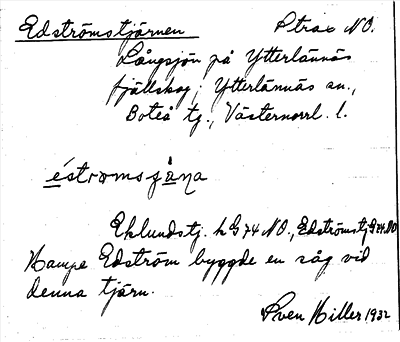 Edströmstjärnen Strax NO.
Långsjön på Ytterlännäs
fjällskog; Ytterlännäs sn.,
Boteå tg., Västernorrl. l.
éstromsgæna
Eklundstj. k G74 NO., Edströmstj G74 NO
Kampe Edström byggde en såg vid
denna tjärn.
Sven Hiller 1932